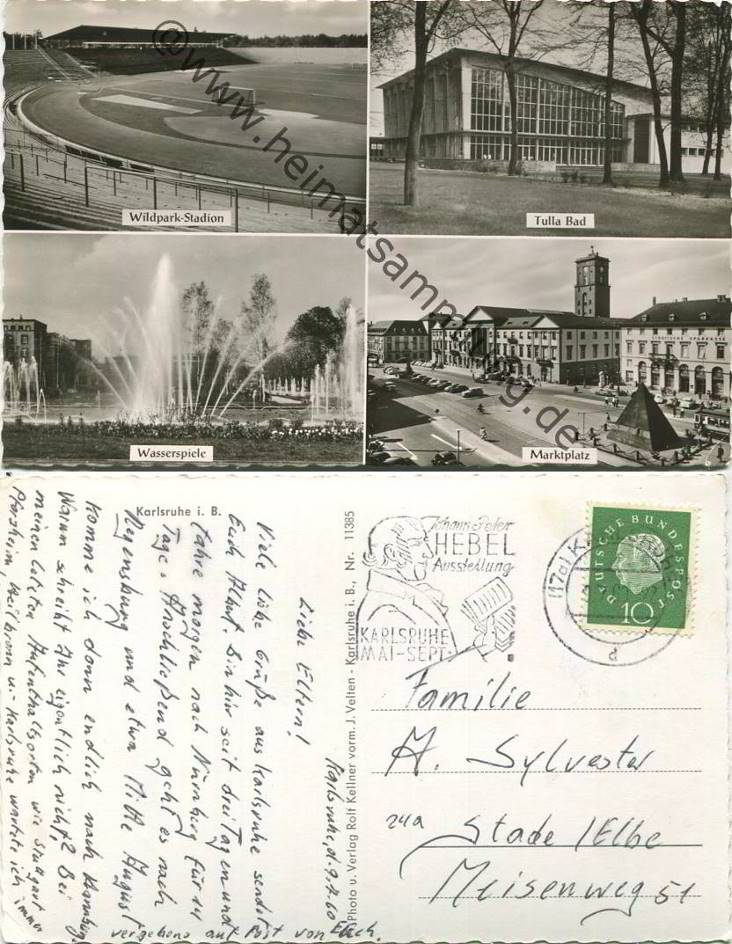 © www.heimatsammlung.de
Wildpark-Stadion
Tulla Bad
STÄDTISCHE SPARKASSE
Wasserspiele
Marktplatz
Karlsruhe i. B.
Karlsruhe, d. 9.7.60
Liebe Eltern!
Viele liebe Grüße aus Karlsruhe sendet
Euch Albert. Bin hier seit drei Tagen und
fahre morgen nach Nürnberg für 14
Tage. Anschließend geht es nach
Regensburg und etwa Mitte August
komme ich dann endlich nach Hamburg.
Warum schreibt Ihr eigentlich nicht? Bei
meinen letzten Aufenthaltsorten wie Stuttgart
Pforzheim, Heilbronn u. Karlsruhe wartete ich immer
vergebens auf Post von Euch.
Photo u. Verlag Rolf Kellner vorm. J. Velten - Karlsruhe i. B., Nr. 11385
Johann Peter
HEBEL
Ausstellung
KARLSRUHE
MAI-SEPT.
(17a) Karlsruhe
d
DEUTSCHE BUNDESPOST
10
Familie
A. Sylvester
24a Stade / Elbe
Meisenweg 51